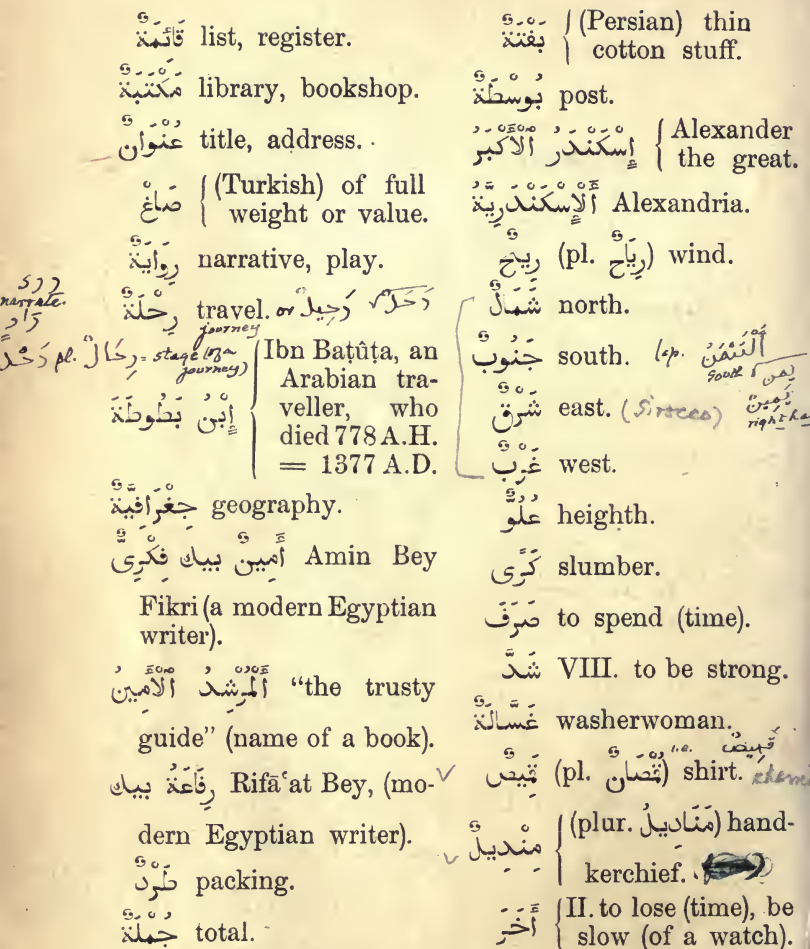 قَائِمَةٌ list, register.
مَكْتَبَةٌ library, bookshop.
عُنْوَانٌ title, address.
صَاغْ (Turkish) of full
weight or value.
رِوَايَةٌ narrative, play.
narrate.
رِحْلَةٌ travel. or رَحِيلٌ √رَحَلَ
journey
pl. رِحَالٌ = stage (of a
journey)
إِبْنُ بَطُوطَةَ Ibn Baṭûṭa, an
Arabian tra-
veller, who
died 778 A.H.
= 1377 A.D.
جِغْرَافِيَّةٌ geography.
أَمِينٌ بيك فِكْرِىٌّ Amin Bey
Fikri (a modern Egyptian
writer).
أَلْمُرْشِدُ ٱلْأَمِينُ “the trusty
guide” (name of a book).
رِفَاعَةُ بيك Rifāʿat Bey, (mo-
dern Egyptian writer).
طَرْدٌ packing.
جُمْلَةٌ total.
بَفْتَةٌ (Persian) thin
cotton stuff.
بُوسْطَةٌ post.
إِسْكَنْدَرُ ٱلْأَكْبَرُ Alexander
the great.
أَلْإِسْكَنْدَرِيَّةُ Alexandria.
رِيحٌ (pl. رِيَاحٌ) wind.
شَمَالٌ north.
جَنُوبٌ south.
South
شَرْقٌ east. (Sirocco) يَمِينٌ
غَرْبٌ west.
عُلُوٌّ heighth.
كَرًى slumber.
صَرَفَ to spend (time).
شَدَّ VIII. to be strong.
غَسَّالَةٌ washerwoman.
i.e. قَمِيصٌ
قَمِيصٌ (pl. قُمْصَانٌ) shirt.
مِنْدِيلٌ (plur. مَنَادِيلُ) hand-
kerchief.
أَخَّرَ II. to lose (time), be
slow (of a watch).